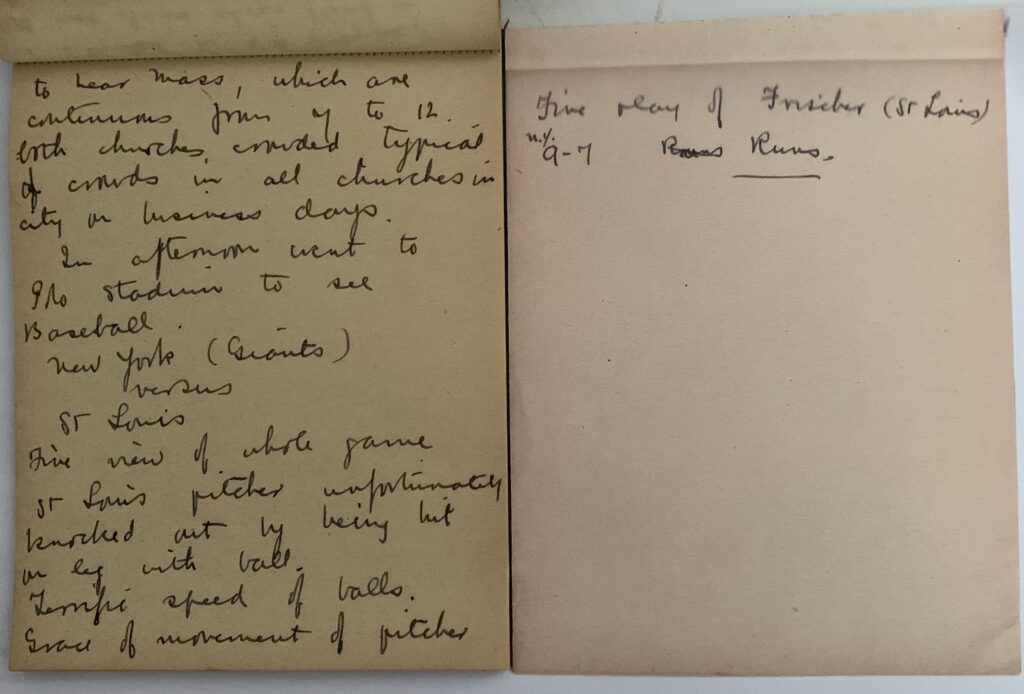 to hear Mass, which are
continuous from 7 to 12.
both churches, crowded typical
of crowds in all churches in
city on business days.
In afternoon went to
Stadium to see
Baseball.
New York (Giants)
versus
St Louis
Fine view of whole game
St Louis pitcher unfortunately
knocked out by being hit
on leg with ball.
Terrific speed of balls.
Grace of movement of pitcher
Fine play of Frischer (St Louis)
N.Y.
9-7 Runs.